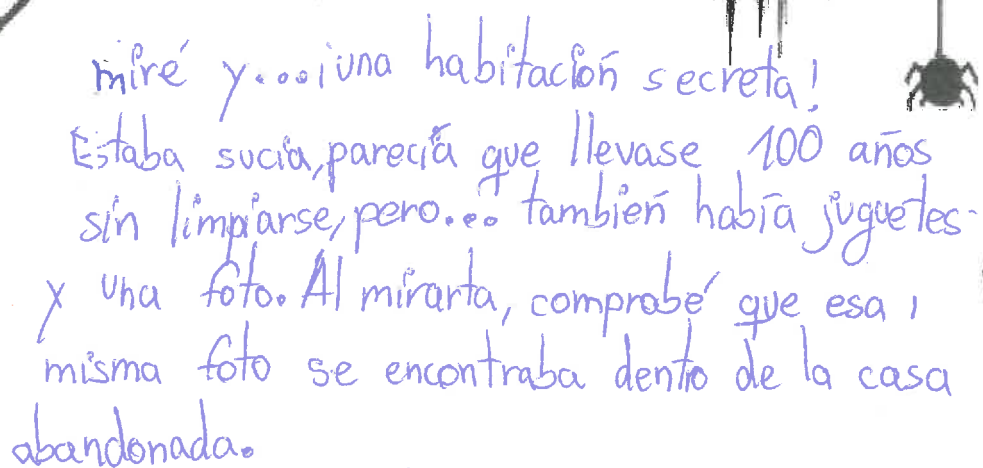 miré y...¡una habitación secreta!
Estaba sucia, parecía que llevase 100 años
sin limpiarse, pero... también había juguetes
y una foto. Al mirarta, comprobé que esa
misma foto se encontraba dentro de la casa
abandonada.